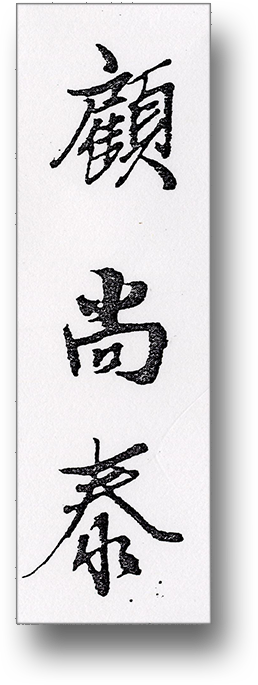 顧尚泰